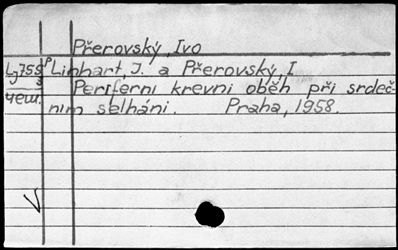 Přerovský, Ivo
Linhart, J. a Přerovský, I
Periferní krevní oběh při srdeč-
ním selhání. Praha, 1958.